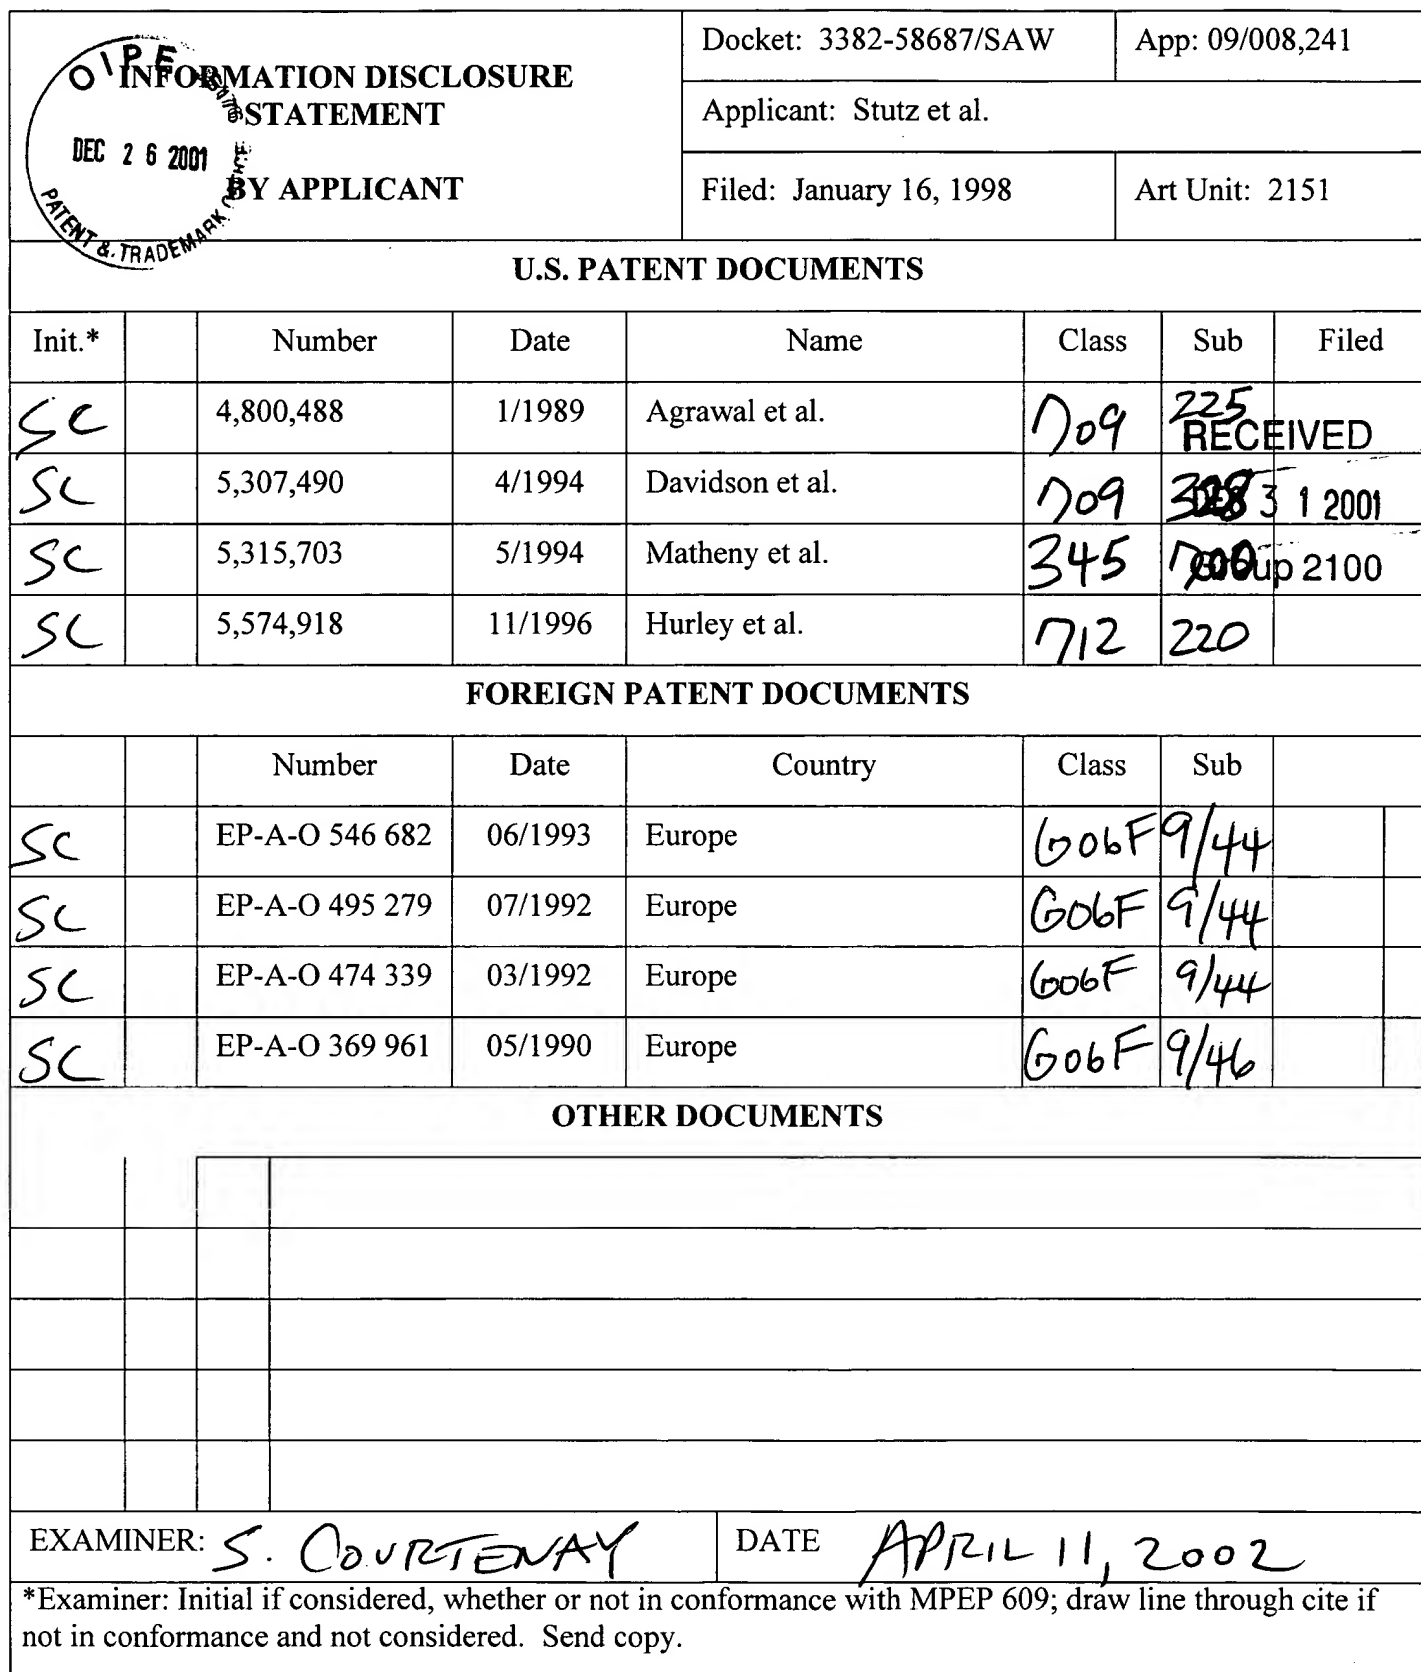 Docket: 3382-58687/SAW App: 09/008,241
OIPE
INFORMATION DISCLOSURE
STATEMENT
BY APPLICANT
DEC 26 2001
PATENT & TRADEMARK
Applicant: Stutz et al.
Filed: January 16, 1998 Art Unit: 2151
U.S. PATENT DOCUMENTS
Init.* Number Date Name Class Sub Filed
SC 4,800,488 1/1989 Agrawal et al. 709 225
RECEIVED
SC 5,307,490 4/1994 Davidson et al. 709
3 1 2001
SC 5,315,703 5/1994 Matheny et al. 345
Group 2100
SC 5,574,918 11/1996 Hurley et al. 712 220
FOREIGN PATENT DOCUMENTS
Number Date Country Class Sub
SC EP-A-O 546 682 06/1993 Europe G06F 9/44
SC EP-A-O 495 279 07/1992 Europe G06F 9/44
SC EP-A-O 474 339 03/1992 Europe G06F 9/44
SC EP-A-O 369 961 05/1990 Europe G06F 9/46
OTHER DOCUMENTS
EXAMINER: S. COURTENAY DATE APRIL 11, 2002
*Examiner: Initial if considered, whether or not in conformance with MPEP 609; draw line through cite if
not in conformance and not considered. Send copy.